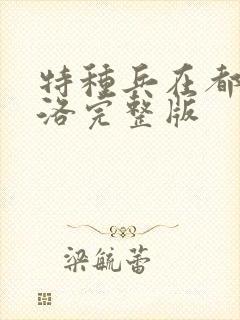 特種兵在都
洛完整版
梁毓蕾